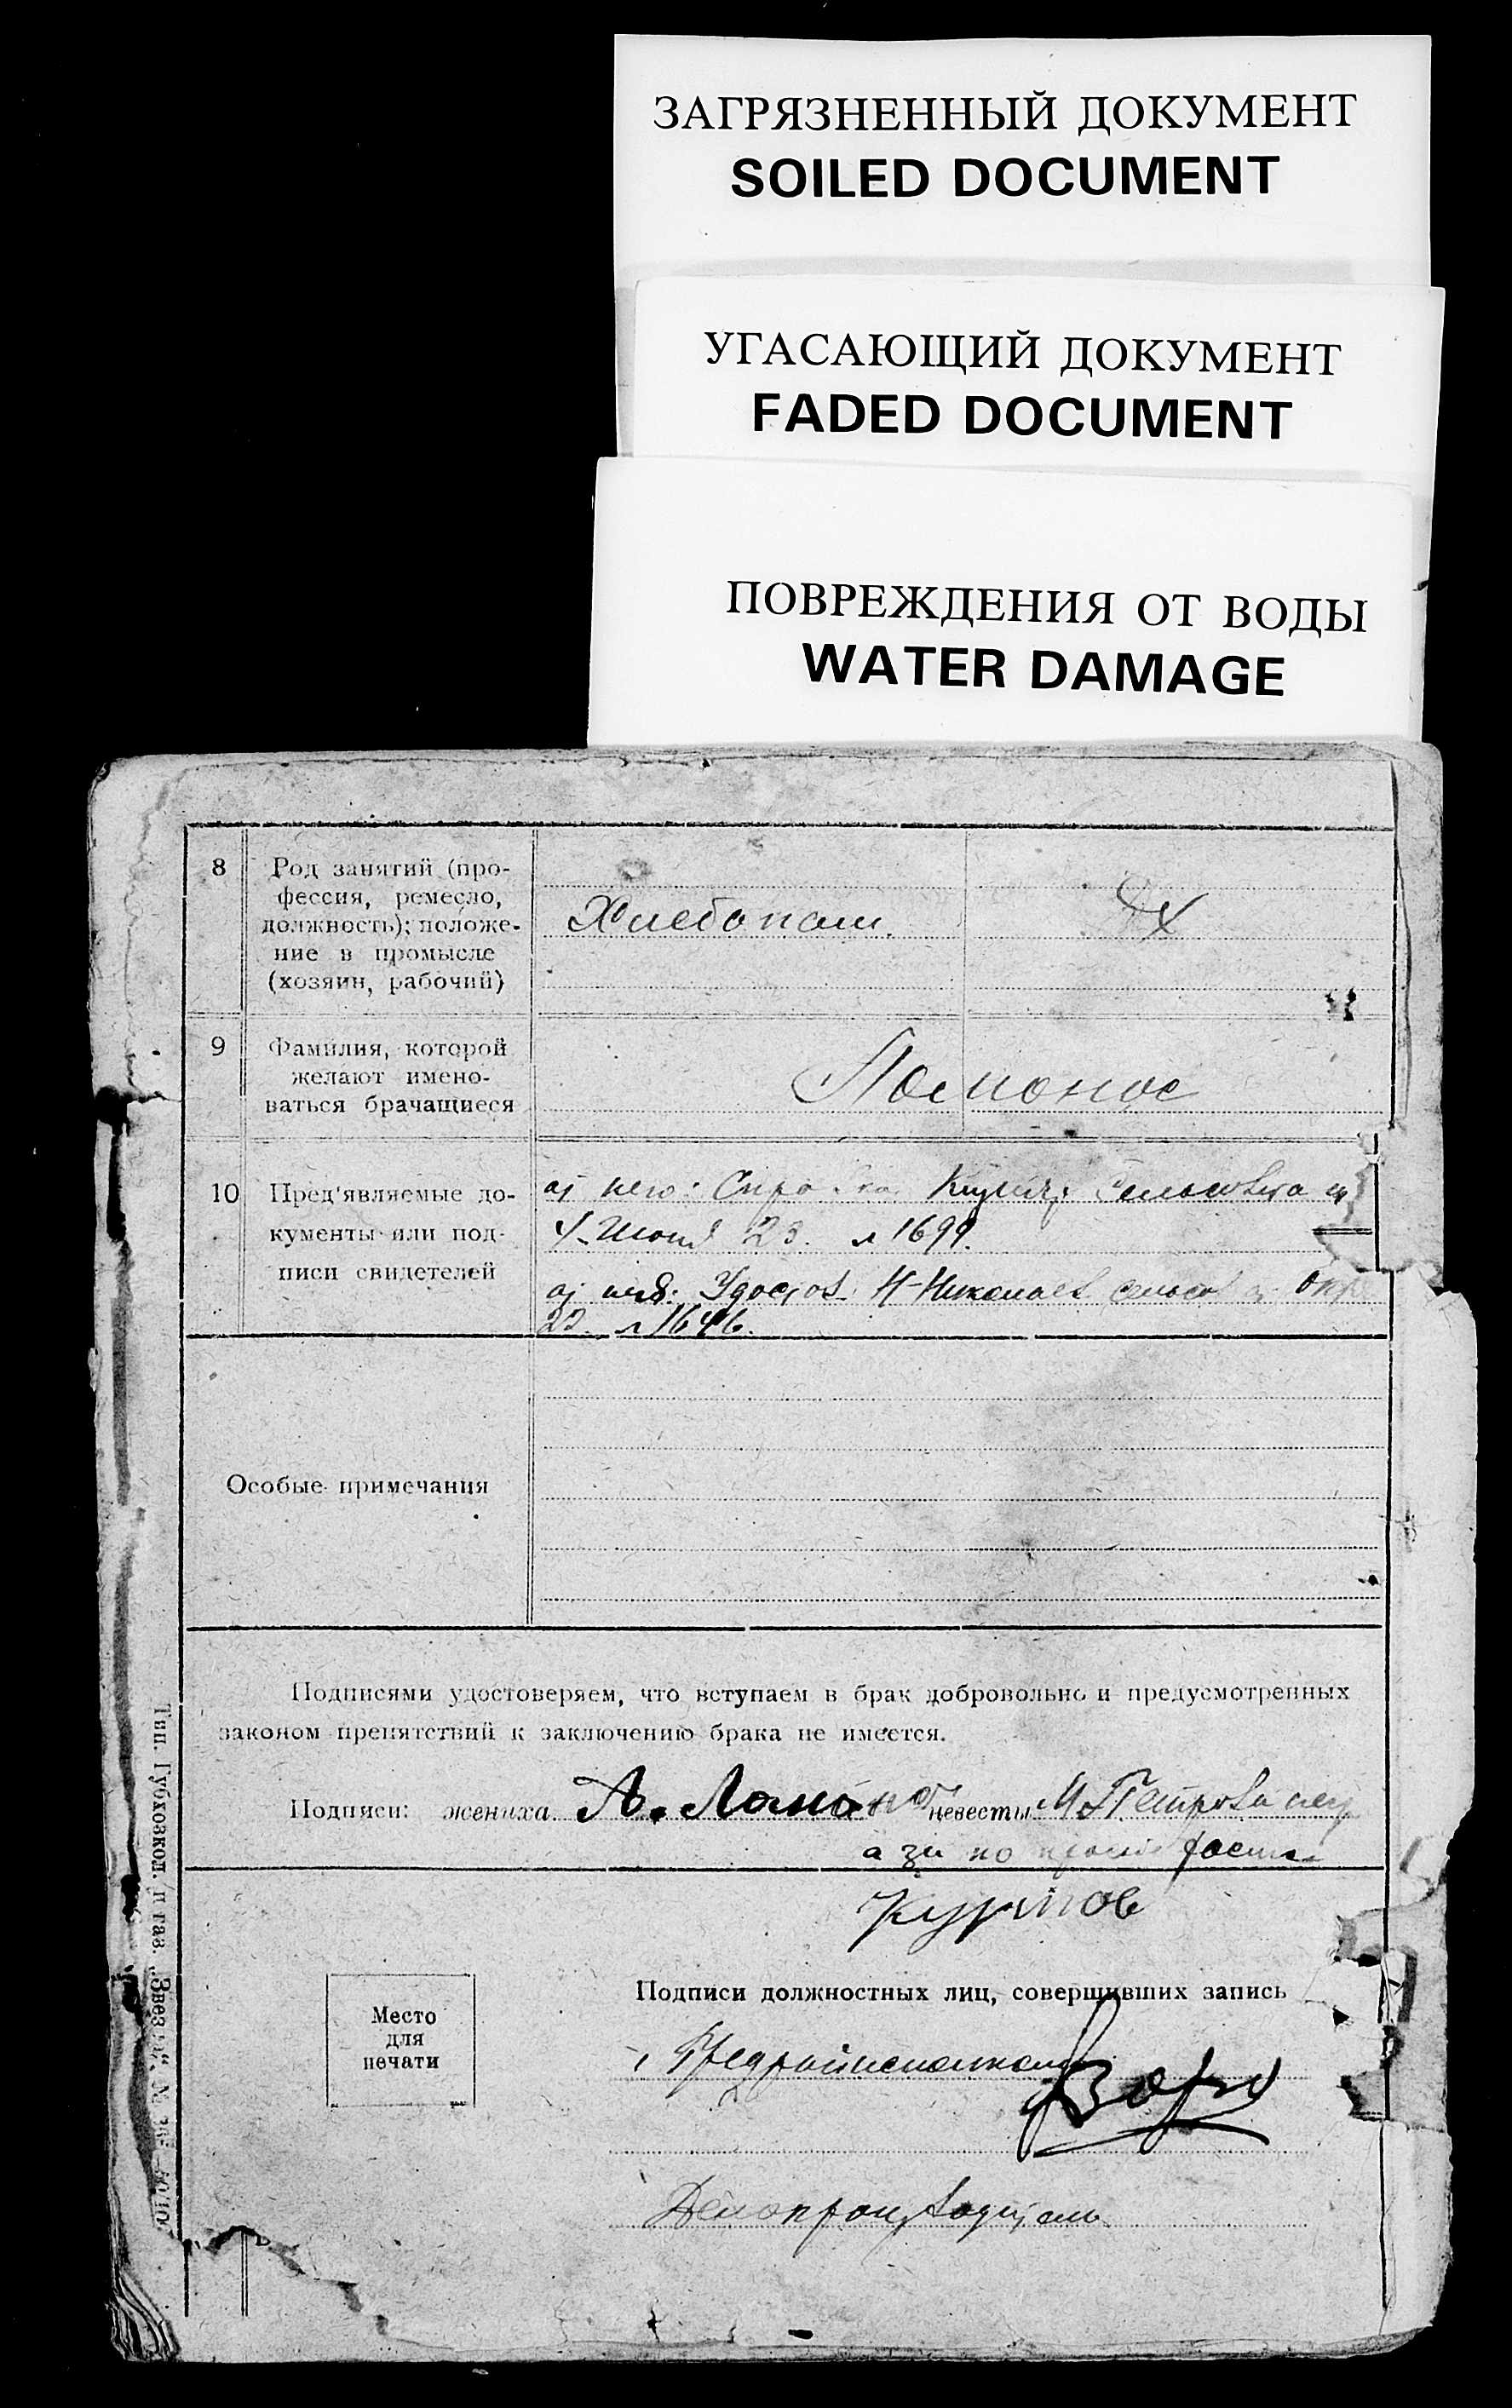 ЗАГРЯЗНЕННЫЙ ДОКУМЕНТ
SOILED DOCUMENT
УГАСАЮЩИЙ ДОКУМЕНТ
FADED DOCUMENT
ПОВРЕЖДЕНИЯ ОТ ВОДЫ
WATER DAMAGE
8
Род занятий (про-
фессия, ремесло,
должность); положе-
ние в промысле
(хозяин, рабочий)
Хлебопаш.
9
Фамилия, которой
желают имено-
ваться брачащиеся
Ломонос
10
Пред'являемые до-
кументы или под-
писи свидетелей
Сельсовета
4 Июня 23. 1699.
Удостов. Н-Николаев
23. 1646.
Особые примечания
Подписями удостоверяем, что вступаем в брак добровольно и предусмотренных
законом препятствий к заключению брака не имеется.
Подписи: жениха А. невесты М Петрова
а за
Место
для
печати
Подписи должностных лиц, совершивших запись
Предрайисполкома
Делопроизводитель
Тип. Губхозкол. п газ.